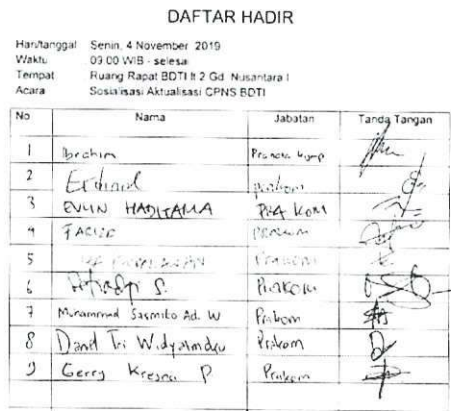 DAFTAR HADIR
Hari/tanggal Senin, 4 November 2019
Waktu 09.00 WIB - selesai
Tempat Ruang Rapat BDTI lt 2 Gd. Nusantara I
Acara Sosialisasi Aktualisasi CPNS BDTI
No Nama Jabatan Tanda Tangan
1 Ibrahim Pranata Komp
2 Prakom
3 EVLIN HADITAMA PRAKOM
4 Prakom
5 Prakom
6 S. Prakom
7 Muhammad Sasmito Ad. W Prakom
8 David Tri Prakom
9 Gerry Kresna P Prakom